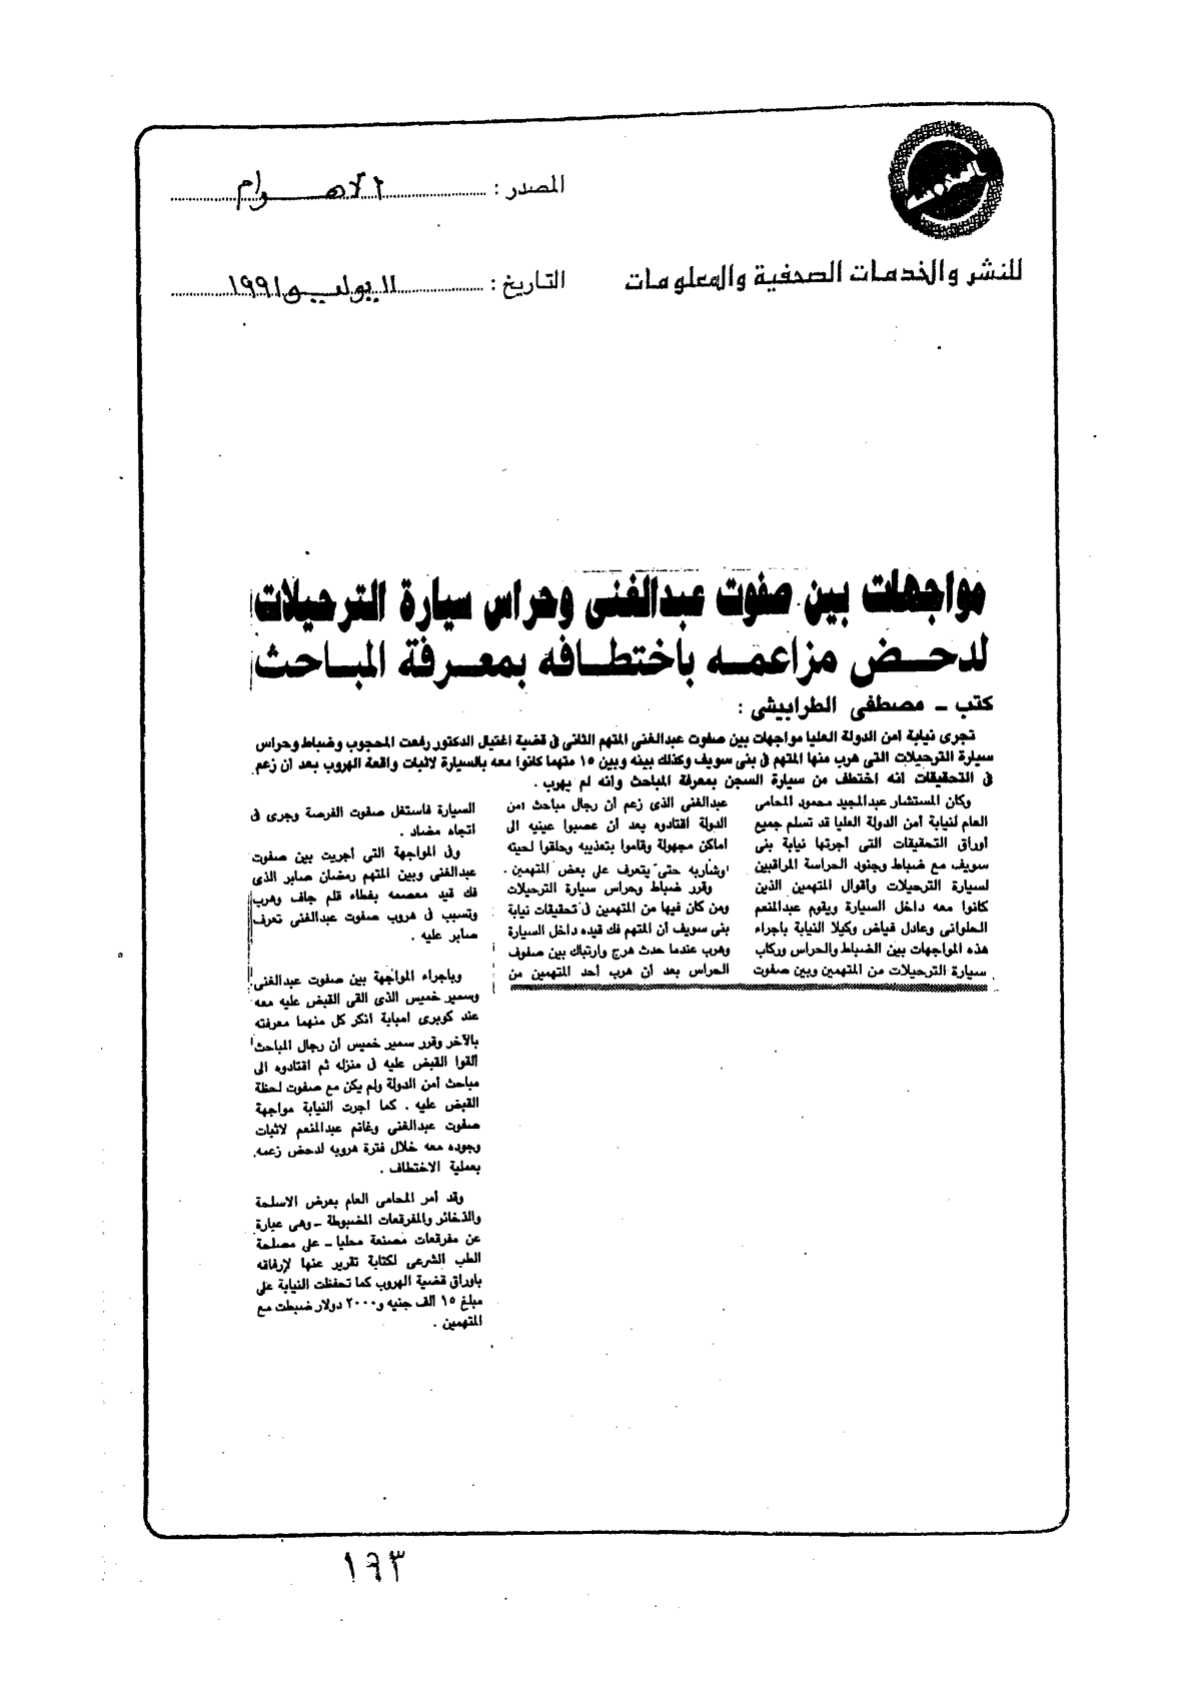 المصدر : الاهرام
للنشر والخدمات الصحفية والمعلومات
التاريخ : ١١ يوليو ١٩٩١
مواجهات بين صفوت عبدالغنى وحراس سيارة الترحيلات
لدحض مزاعمه باختطافه بمعرفة المباحث
كتب – مصطفى الطرابيشى :
تجرى نيابة امن الدولة العليا مواجهات بين صفوت عبدالغنى المتهم الثانى فى قضية اغتيال الدكتور رفعت المحجوب وضباط وحراس
سيارة الترحيلات التى هرب منها المتهم فى بنى سويف وكذلك بينه وبين ١٥ متهما كانوا معه بالسيارة لاثبات واقعة الهروب بعد ان زعم
فى التحقيقات انه اختطف من سيارة السجن بمعرفة المباحث وانه لم يهرب .
وكان المستشار عبدالمجيد محمود المحامى
العام لنيابة أمن الدولة العليا قد تسلم جميع
أوراق التحقيقات التى أجرتها نيابة بنى
سويف مع ضباط وجنود الحراسة المراقبين
لسيارة الترحيلات وأقوال المتهمين الذين
كانوا معه داخل السيارة ويقوم عبدالمنعم
الحلوانى وعادل فياض وكيلا النيابة باجراء
هذه المواجهات بين الضباط والحراس وركاب
سيارة الترحيلات من المتهمين وبين صفوت
عبدالغنى الذى زعم أن رجال مباحث امن
الدولة اقتادوه بعد ان عصبوا عينيه الى
اماكن مجهولة وقاموا بتعذيبه وحلقوا لحيته
وشاربه حتى يتعرف على بعض المتهمين .
وقرر ضباط وحراس سيارة الترحيلات
ومن كان فيها من المتهمين فى تحقيقات نيابة
بنى سويف أن المتهم فك قيده داخل السيارة
وهرب عندما حدث هرج وارتباك بين صفوف
الحراس بعد أن هرب أحد المتهمين من
السيارة فاستغل صفوت الفرصة وجرى فى
اتجاه مضاد .
وفى المواجهة التى أجريت بين صفوت
عبدالغنى وبين المتهم رمضان صابر الذى
فك قيد معصمه بغطاء قلم جاف وهرب
وتسبب فى هروب صفوت عبدالغنى تعرف
صابر عليه .
وباجراء المواجهة بين صفوت عبدالغنى
وسمير خميس الذى القى القبض عليه معه
عند كوبرى امبابة انكر كل منهما معرفته
بالآخر وقرر سمير خميس ان رجال المباحث
ألقوا القبض عليه فى منزله ثم اقتادوه الى
مباحث أمن الدولة ولم يكن مع صفوت لحظة
القبض عليه . كما اجرت النيابة مواجهة
صفوت عبدالغنى وغانم عبدالمنعم لاثبات
وجوده معه خلال فترة هروبه لدحض زعمه
بعملية الاختطاف .
وقد أمر المحامى العام بعرض الاسلحة
والذخائر والمفرقعات المضبوطة – وهى عبارة
عن مفرقعات مصنعة محليا – على مصلحة
الطب الشرعى لكتابة تقرير عنها لإرفاقه
باوراق قضية الهروب كما تحفظت النيابة على
مبلغ ١٥ الف جنيه و٢٠٠٠ دولار ضبطت مع
المتهمين .
١٦٣